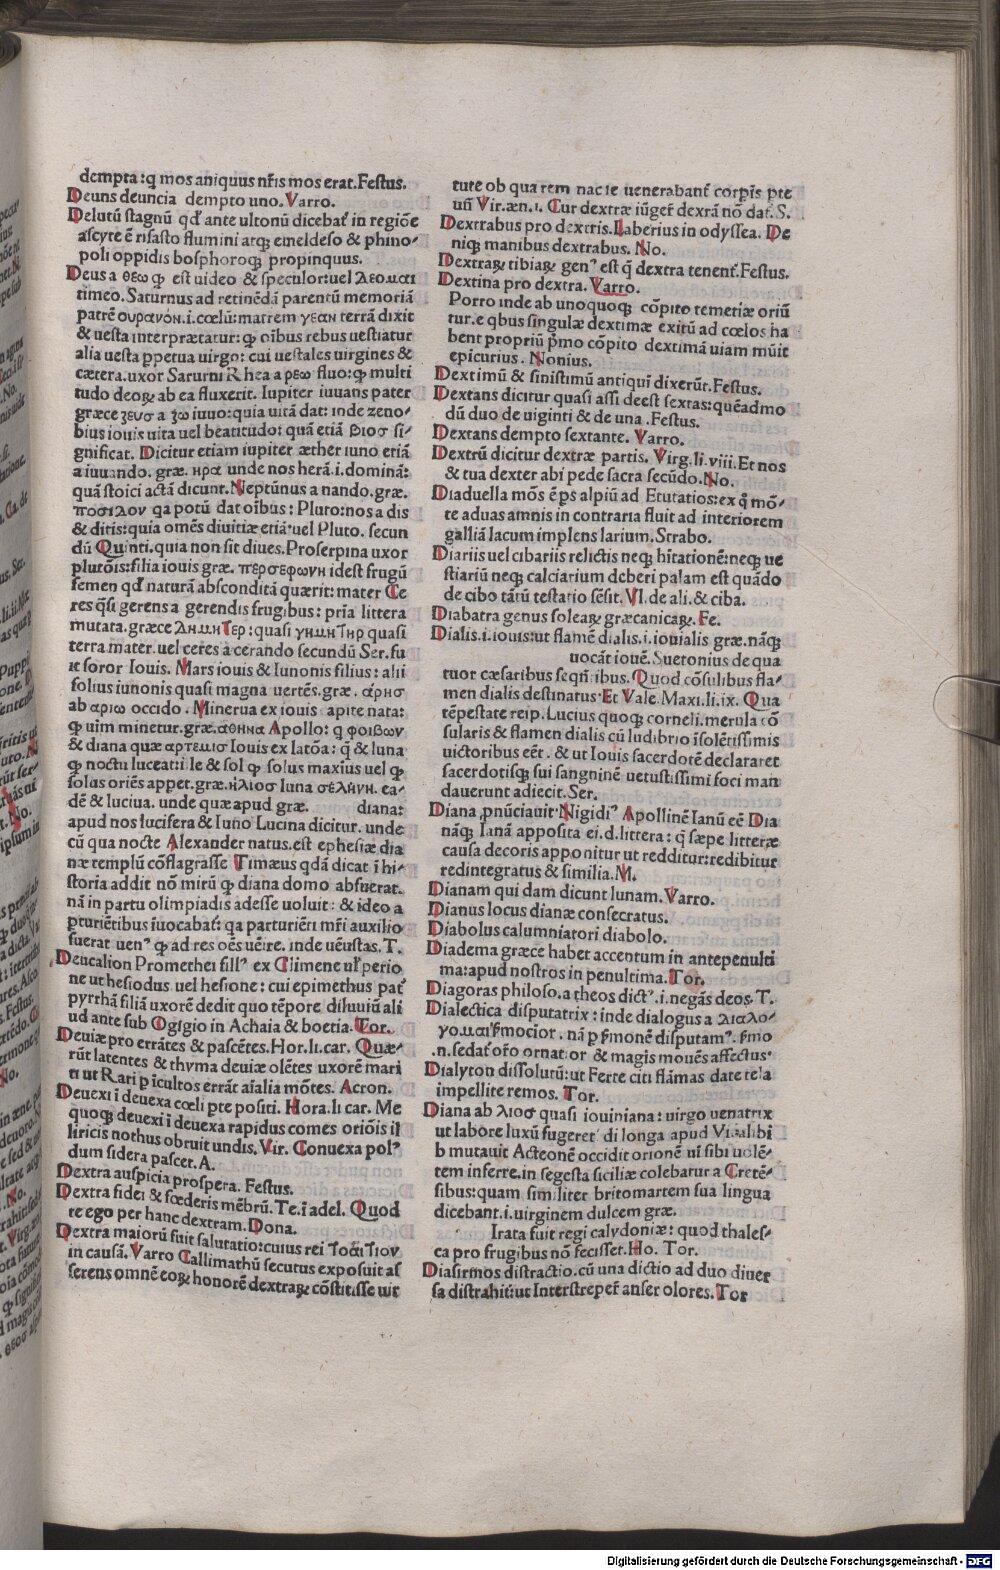 dempta: q mos aniquus nr̃is mos erat. Festus.
Deuns deuncia dempto uno. Varro.
Delutũ stagnũ qď ante ultonũ dicebať in regiõe
ascyte ẽ rifasto flumini atqꝫ emeldeso & phino⸗
poli oppidis bosphoroqꝫ propinquus.
Deus a θεω ꝙ est uideo & speculor: uel Δεομαι
timeo. Saturnus ad retinẽdã parentũ memoriã
patrẽ ουρανόν. i. cœlũ: matrem γεαν terrã dixit
& uesta interprætatur: ꝙ oĩbus rebus uestiatur
alia uesta ppetua uirgo: cui uestales uirgines &
cætera. uxor Saturni Rhea a ρεω fluo: ꝙ multi
tudo deoꝝ ab ea fluxerit. Iupiter iuuans pater
græce ζευσ a ζω iuuo: quia uitã dat: inde zeno⸗
bius iouis uita uel beatitudo: quã etiã βιοσ si⸗
gnificat. Dicitur etiam iupiter æther iuno etiã
a iuuando. græ. ηρα unde nos herã. i. dominã:
quã stoici actã dicunt. Neptũnus a nando. græ.
ποσιλον qa potũ dat oĩbus: Pluto: nos a dis
& ditis: quia omẽs diuitiæ etiã· uel Pluto. secun
dũ Quinti. quia non sit diues. Proserpina uxor
plutõis: filia iouis græ. περσεφωνη idest frugũ
semen qď naturã absconditã quærit: mater Ce
res q̃si gerens a gerendis frugibus: pr̃ia littera
mutata. græce ΔημηΤερ: quasi γημηΤηρ quasi
terra mater. uel ceres a cerando secundũ Ser. fu
it soror Iouis. Mars iouis & Iunonis filius: alii
solius iunonis quasi magna uertẽs. græ. άρησ
ab αριω occido. Minerua ex iouis apite nata:
ꝙ uim minetur. græ. αθηνα Apollo: q φοιβων
& diana quæ αρτεμισ Iouis ex latõa: q̃ & luna
ꝙ noctu luceat: i le & sol ꝙ solus maxius uel ꝙ
solus oriẽs appet. græ. ηλιοσ luna σεληνη. ea⸗
dẽ & luciua. unde quæ apud græ. diana:
apud nos lucifera & Iuno Lucina dicitur. unde
cũ qua nocte Alexander natus. est ephesiæ dia
næ templũ cõflagrasse Timæus qdã dicat ĩ hi⸗
storia addit nõ mirũ ꝙ diana domo absuerat.
nã in partu olimpiadis adesse uoluit: & ideo a
pturiẽtibus iuocabať: qa parturiẽti mr̃i auxilio
fuerat uenˀ ꝙ ad res oẽs uẽire. inde uẽustas. T.
Deucalion Promethei fillˀ ex Climene uľ perio
ne ut hesiodus uel hesione: cui epimethus pať
pyrrhã filiã uxorẽ dedit quo tẽpore diluuiũ ali
ud ante sub Ogigio in Achaia & boetia. Tor.
Deuiæ pro errãtes & pascẽtes. Hor. li. car. Quæ⸗
rũt latentes & thyma deuiæ olẽtes uxorẽ mari
ti ut Rari p icultos errãt aĩalia mõtes. Acron.
Deuexi i deuexa cœli pte positi. Hora. li. car. Me
quoqꝫ deuexi i deuexa rapidus comes oriõis il
liricis nothus obruit undis. Vir. Conuexa polˀ
dum sidera pascet. A.
Dextra auspicia prospera. Festus.
Dextra fidei & sœderis mẽbrũ. Te. ĩ adel. Quod
te ego per hanc dextram. Dona.
Dextra maiorũ fuit salutatio: cuius rei Τοάι Τιον
in causã. Varro Callimathũ secutus exposuit as
serens omnẽ eoꝝ honorẽ dextraꝝ cõstitisse uir
tute ob qua rem nac ie uenerabanť corpĩs pte
uñ Vir. æn. i. Cur dextræ iũgeř dextrã nõ daſ. S.
Dextrabus pro dextris. Laberius in odyssea. De
niqꝫ manibus dextrabus. No.
Dextraꝝ tibiaꝝ genˀ est q̃ dextra tenenť. Festus.
Dextina pro dextra. Varro.
Porro inde ab unoquoqꝫ cõpito temetiæ oriũ
tur. e qbus singulæ dextimæ exitũ ad cœlos ha
bent propriũ p̃mo cõpito dextimã uiam mũit
epicurius. Nonius.
Dextimũ & sinistimũ antiqui dixerũt. Festus.
Dextans dicitur quasi assi deest sextas: quẽadmo
dũ duo de uiginti & de una. Festus.
Dextans dempto sextante. Varro.
Dextrũ dicitur dextræ partis. Virg. li. viii. Et nos
& tua dexter abi pede sacra secũdo. No.
Diaduella mõs ẽ ps alpiũ ad Etutatios: ex q̃ mõ⸗
te aduas amnis in contraria fluit ad interiorem
galliã lacum implens larium. Strabo.
Diariis uel cibariis relictis neqꝫ hĩtationẽ: neqꝫ ue
stiariũ neqꝫ calciarium deberi palam est quãdo
de cibo tãtũ testatio sẽsit. Vl. de ali. & ciba.
Diabatra genus soleaꝝ græcanicaꝝ. Fe.
Dialis. i. iouis: ut flamẽ dialis. i. iouialis græ. nãqꝫ
uocãt iouẽ. Suetonius de qua
tuor cæsaribus seqñ: ibus. Quod cõsulibus fla⸗
men dialis destinatus· Et Vale. Maxi. li. ix. Qua
tẽpestate reip. Lucius quoqꝫ corneli. merula cõ
sularis & flamen dialis cũ ludibrio ĩsolẽtissimis
uictoribus eẽt. & ut Iouis sacerdotẽ declararet
sacerdotisqꝫ sui sangninẽ uetustissimi foci man
dauerunt adiecit. Ser.
Diana pnũciauit Nigidiˀ Apollinẽ Ianũ eẽ Dia
nãqꝫ Ianã apposita ei. d. littera: q̃ sæpe litteræ
causa decoris apponitur ut redditur: redibitur
redintegratus & similia. M.
Dianam qui dam dicunt lunam. Varro.
Dianus locus dianæ consecratus.
Diabolus calumniatori diabolo.
Diadema græce habet accentum in antepenulti
ma: apud nostros in penultima. Tor.
Diagoras philoso. a theos dictˀ. i. negãs deos. T.
Dialectica disputatrix: inde dialogus a λιαλο⸗
γομαι p̃mocior. nã p p̃monẽ disputamˀ. p̃mo
.n. sedať ořo ornatior & magis mouẽs affectus·
Dialyton dissolutũ: ut Ferte citi flãmas date tela
impellite remos. Tor.
Diana ab λιοσ quasi iouiniana: uirgo uenatrix
ut labore luxũ fugereť di longa apud Vi. alibi
b mutauit Acteonẽ occidit orionẽ ui sibi uolẽ⸗
tem inferre. in segesta siciliæ colebatur a Cretẽ⸗
sibus: quam similiter britomartem sua lingua
dicebant. i. uirginem dulcem græ.
Irata fuit regi calydoniæ: quod thales⸗
ca pro frugibus nõ fecisset. Ho. Tor.
Diasirmos distractio. cũ una dictio ad duo diuer
sa distrahit: ut Interstrepeř anser olores. Tor
Digitalisierung gefördert durch die Deutsche Forschungsgemeinschaft - DFG